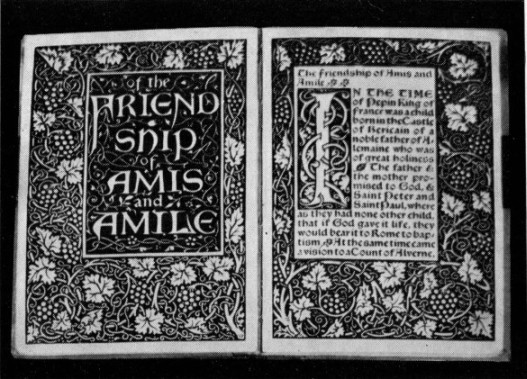 of the
FRIEND
SHIP
of
AMIS
and
AMILE
The friendship of Amis and
Amile
IN THE TIME
of Pepin King of
France was a child
born in the Castle
of Bericain of a
noble father of A-
lemaine who was
of great holiness
The father &
the mother pro-
mised to God, &
Saint Peter and
Saint Paul, where
as they had none other child,
that if God gave it life, they
would bear it to Rome to bap-
tism. At the same time came
a vision to a Count of Alverne,